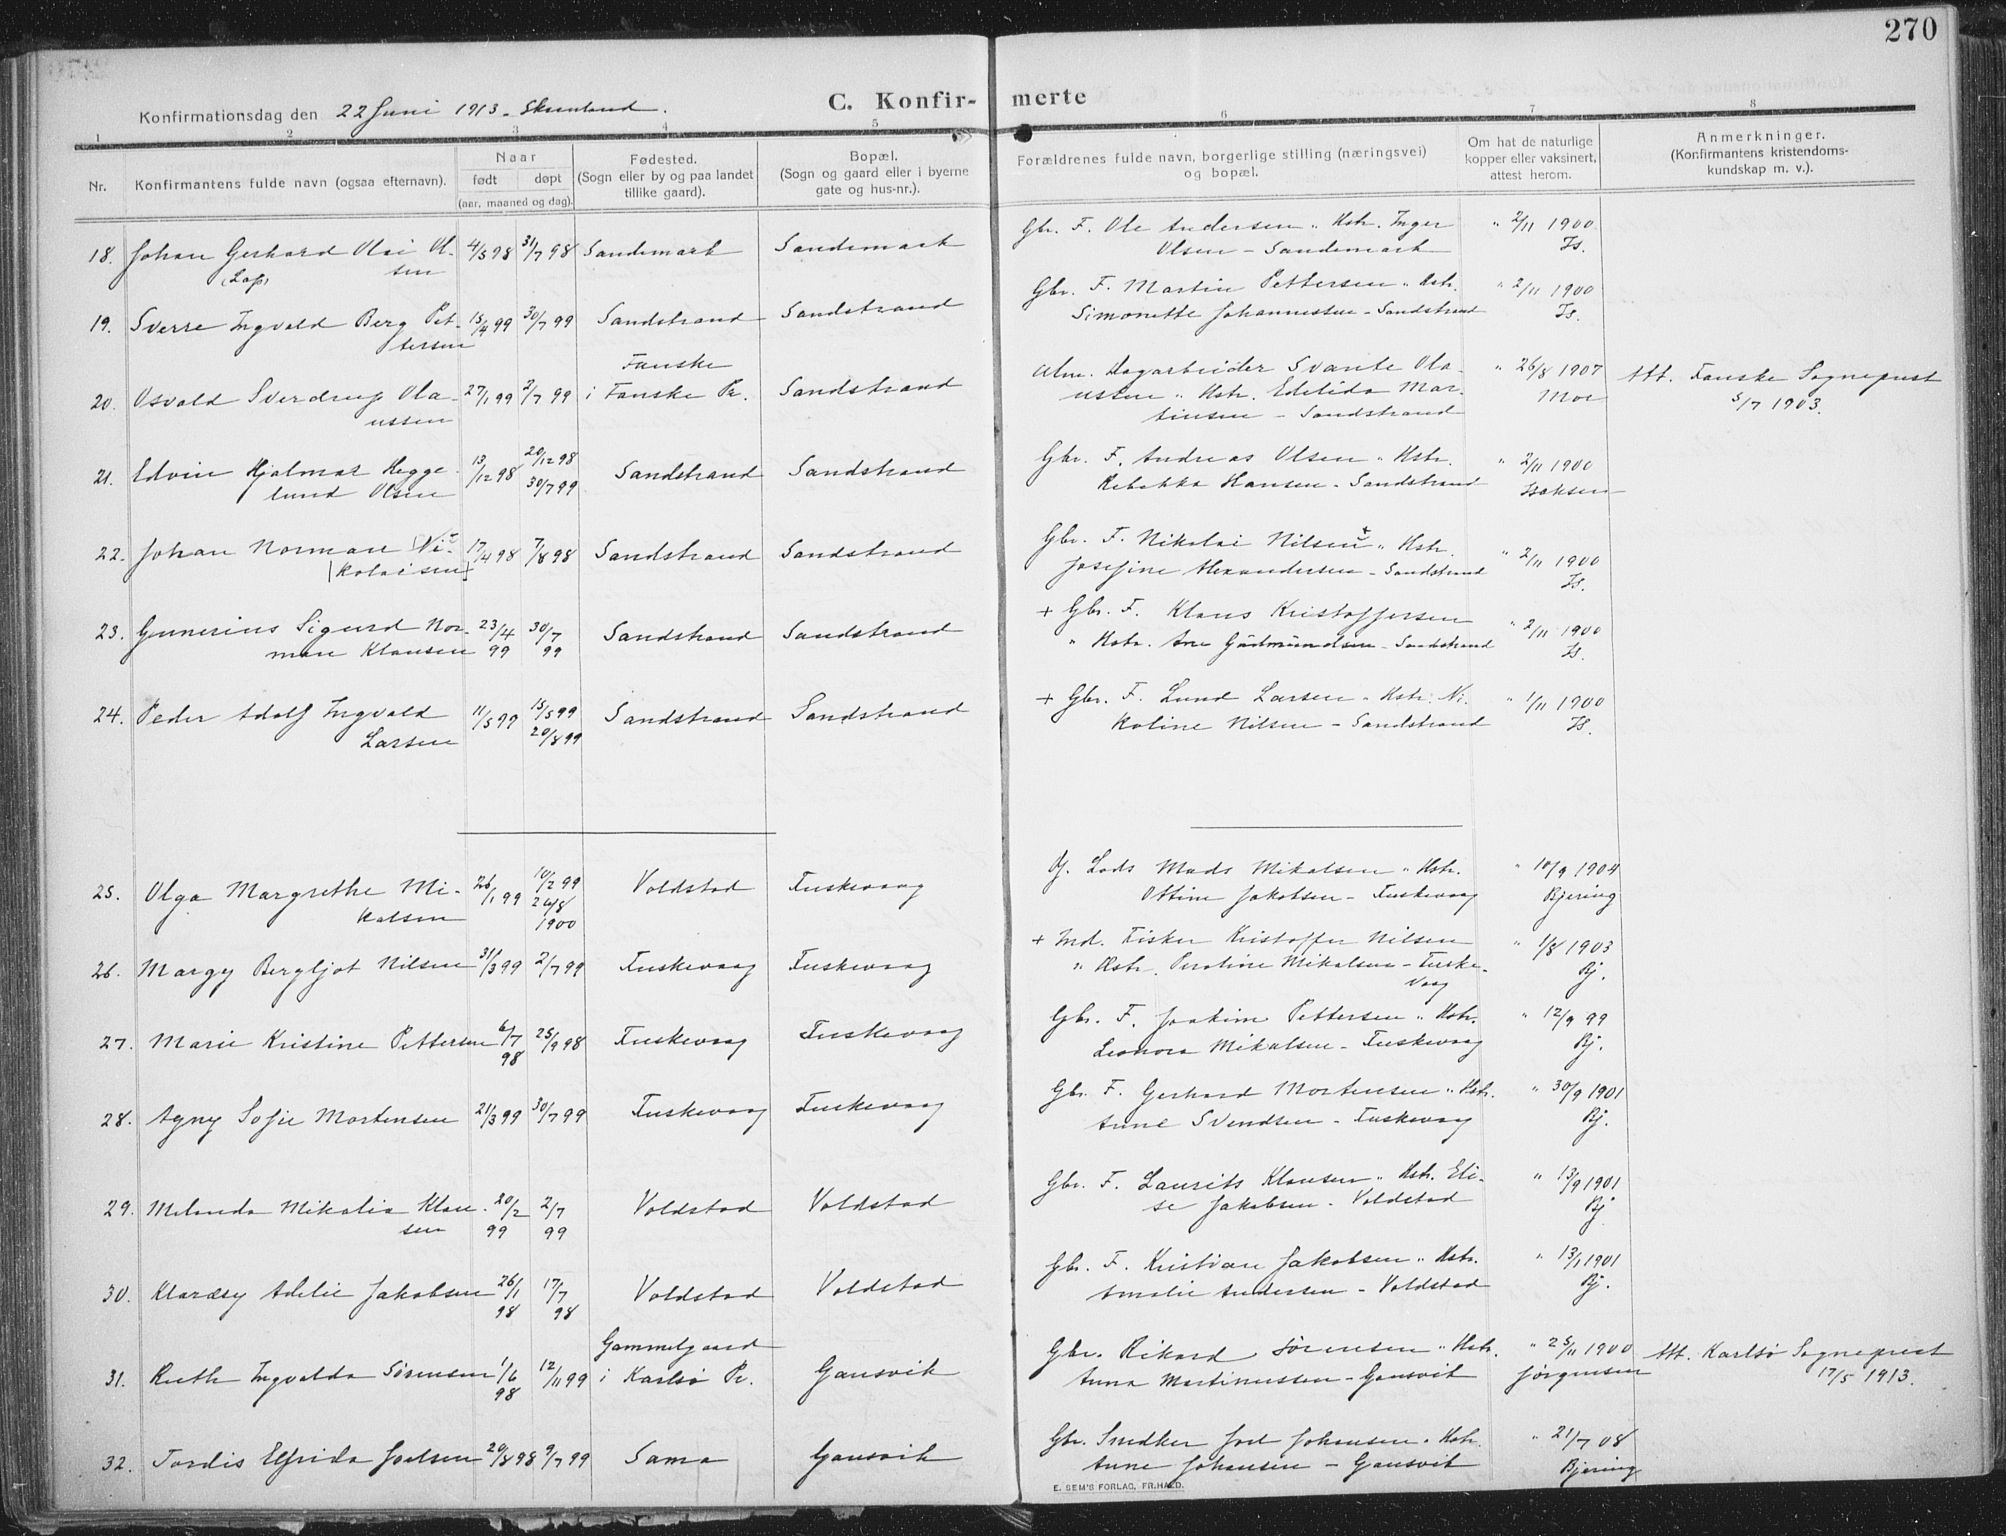 270
Konfirmationsdag den 22 Juni 1913 -
C. Konfir- merte
1 2 3 4 5 6 7 8
Nr.
Konfirmantens fulde navn (ogsaa efternavn).
Naar
født døpt
(aar, maaned og dag).
Fødested.
(Sogn eller by og paa landet
tillike gaard).
Bopæl.
(Sogn og gaard eller i byerne
gate og hus-nr.).
Forældrenes fulde navn, borgerlige stilling (næringsvei)
og bopæl.
Om hat de naturlige
kopper eller vaksinert,
attest herom.
Anmerkninger.
(Konfirmantens kristendoms-
kundskap m. v.).
18. Johan Gerhard Olai Ol- 4/5 98 31/7 98 Sandemark Sandemark Gbr. F. Ole Andersen " Hstr. Inger " 2/11 1900
(Lap) sen Olsen - Sandemark Is.
19. Sverre Ingvald Berg Pet- 15/4 99 30/7 99 Sandstrand Sandstrand Gbr. F. Martin Pettersen " Hstr. " 2/11 1900
tersen Simonette Johannessen - Sandstrand Is.
Fauske
20. Osvald Sverdrup Ola- 27/1 99 2/7 99 i Fauske Pr. Sandstrand Alm. Dagarbeider Svante Ola- " 26/8 1907 Att. Fauske Sogneprest
ussen ussen " Hstr. Edelida Mar- Moe 5/7 1903.
tinsen - Sandstrand
21. Edvin Hjalmar Hegge- 13/12 98 20/12 98 Sandstrand Sandstrand Gbr. F. Andreas Olsen " Hstr. " 2/11 1900
lund Olsen 30/7 99 Rebekka Hansen - Sandstrand Isaksen
22. Johan Norman (Ni- 17/4 98 7/8 98 Sandstrand Sandstrand Gbr. F. Nikolai Nilsen + " Hstr. " 2/11 1900
kolaisen) Josefine Alexandersen - Sandstrand Is.
23. Gunerius Sigurd Nor- 23/4 30/7 Sandstrand Sandstrand + Gbr. F. Klaus Kristoffersen " 2/11 1900
man Klausen 99 99 " Hstr. Ane Gudmundsen - Sandstrand Is.
24. Peder Adolf Ingvald 11/5 99 15/5 99 Sandstrand Sandstrand + Gbr. F. Lund Larsen " Hstr. Ni- " 1/11 1900
Larsen 20/8 99 koline Nilsen - Sandstrand Is.
25. Olga Margrethe Mi- 26/1 99 10/2 99 Voldstad Tuskevaag Gj. Lods Mads Mikalsen " Hstr. " 10/9 1904
kalsen 26/8 1900 Ottine Jakobsen - Tuskevaag Bjering
26. Margy Bergljot Nilsen 31/3 99 2/7 99 Tuskevaag Tuskevaag + Ind. Fisker Kristoffer Nilsen " 1/8 1903
" Hstr. Mikalsen - Tuske- Bj.
vaag
27. Marie Kristine Pettersen 6/7 98 25/9 98 Tuskevaag Tuskevaag Gbr. F. Joakim Pettersen " Hstr. " 12/9 99
Leonora Mikalsen - Tuskevaag Bj.
28. Agny Sofie Mortensen 21/3 99 30/7 99 Tuskevaag Tuskevaag Gbr. F. Gerhard Mortensen " Hstr. " 30/9 1901
Anne Svendsen - Tuskevaag Bj.
29. Milanda Mikalia Klau- 20/2 2/7 Voldstad Voldstad Gbr. F. Laurits Klausen " Hstr. Eli- " 13/9 1901
sen 99 99 se Jakobsen - Voldstad Bj
30. Klaræsy Adelie Jakobsen 26/1 98 17/7 98 Voldstad Voldstad Gbr. F. Kristian Jakobsen " Hstr. " 13/1 1901
Amalie Andersen - Voldstad Bj.
Gammelgaard
31. Ruth Ingvalda Sörensen 1/6 98 12/11 99 i Karlsö Pr. Gausvik Gbr. Rikard Sörensen " Hstr. " 25/11 1900 Att. Karlsö Sogneprest
Anna Martinussen - Gausvik Jørgensen 17/5 1913.
32. Tordis Elfrida Joelsen 20/8 98 9/7 99 Sama Gausvik Gbr. Snedker Joel Johansen " Hstr. " 21/7 08
Anne Johansen - Gausvik Bjering
E. SEM'S FORLAG, FR.HALD.